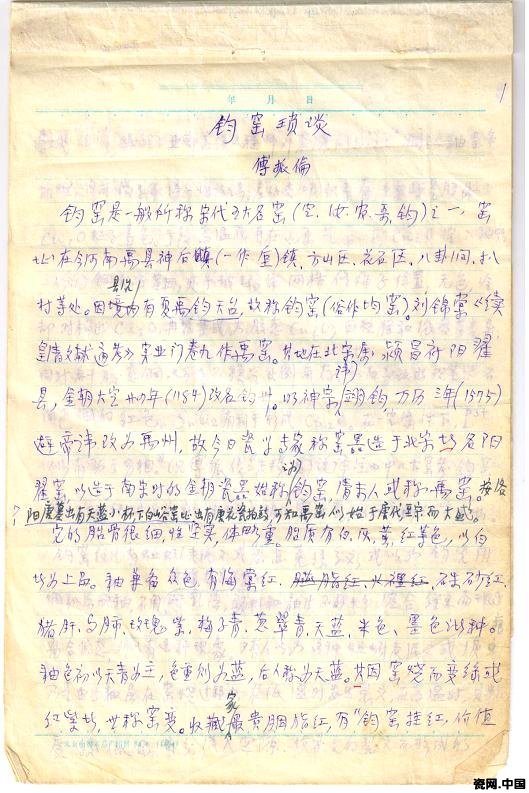 年 月 日
1
钧窑琐谈
傅振倫
钧窑是一般所称宋代五大名窑(定、汝、官、哥、钧)之一,窑
址在今河南禹县神后镇(一作垕)镇、方山区、花石区、八卦洞、扒
村等处。因县境内有夏禹钧天台,故称钧窑(俗作均窑)。刘锦棠《续
皇清文献通考》实业门卷九作禹窑。其地在北宋属颍昌府阳翟
县,金朝大定廿四年(1184)改名钧州。明神宗(讳)翊钧,万历三年(1575)
避帝讳改为禹州,故今日瓷学家称窑器造于北宋者名阳
翟窑,以造于南宋时的金朝瓷器始称(为)钧窑,清末人或称禹窑。按洛
阳唐墓出有天蓝小杯,下白峪窑址出有唐花瓷拍鼓,可知禹窑似始于唐代至宋而大盛。
它的胎骨很细,性坚实,体略重。胎质有白、灰、黄、红等色,以白
者为上品。釉兼备众色,有海棠红、胭脂红、火裡红、硃砂红、
猪肝、马肺、玫瑰紫、梅子青、葱翠青、天蓝、米色、墨色、诸种。
釉色初以天青为主,色重则为蓝,后人称为天蓝。其因窑烧而变绿或
红紫者,世称窑变。收藏家最贵胭脂红,有"钧窑挂红,价值
瓷网.中国